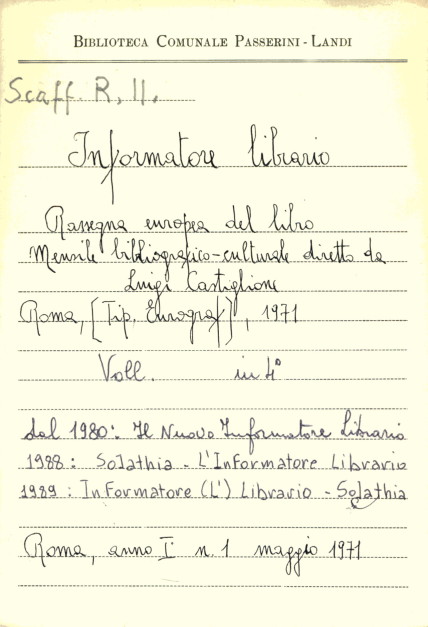 BIBLIOTECA COMUNALE PASSERINI - LANDI
Scaff. R, 11.
Informatore librario
Rassegna europea del libro
Mensile bibliografico-culturale diretto da
Luigi Castiglione
Roma, [Tip. Eurograf], 1971
Voll. in 4°
dal 1980: Il Nuovo Informatore Librario
1988: Solathia - L'Informatore Librario
1989: Informatore (L') Librario - Solathia
Roma, anno I n. 1 maggio 1971